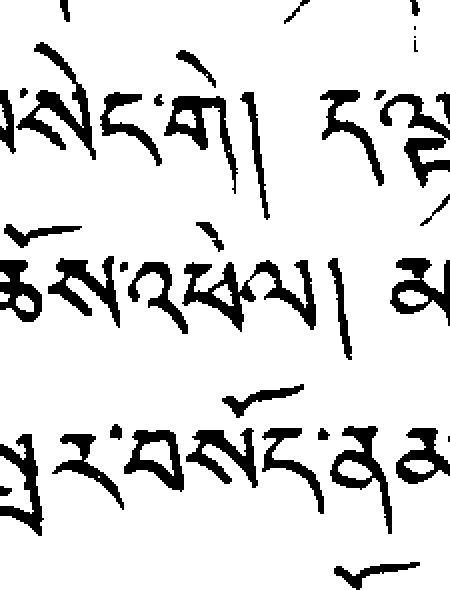 སེང་གེ། ད་ལྟ
ཆོས་འཕེལ། མ
ར་བསོད་ནམ